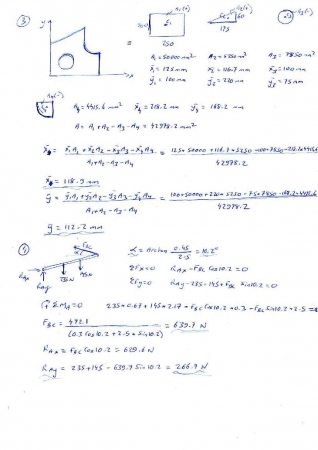 3
y
A₁(+)
200
250
A₂(+)
60
175
A₃(-)
=
A₁ = 50000 mm² A₂ = 5250 mm² A₃ = 7850 mm²
x̄₁ = 125 mm x̄₂ = 116.7 mm x̄₃ = 100 mm
ȳ₁ = 100 mm ȳ₂ = 220 mm ȳ₃ = 75 mm
A₄(-)
A₄ = 4415.6 mm² x̄₄ = 218.2 mm ȳ₄ = 168.2 mm
A = A₁ + A₂ - A₃ - A₄ = 42978.2 mm²
x̄ = x̄₁A₁ + x̄₂A₂ - x̄₃A₃ - x̄₄A₄ / A₁+A₂-A₃-A₄ = 125×50000 + 116.7×5250 - 100×7850 - 218.2×4415.6 / 42978.2
x̄ = 118.9 mm
ȳ = ȳ₁A₁ + ȳ₂A₂ - ȳ₃A₃ - ȳ₄A₄ / A₁+A₂-A₃-A₄ = 100×50000 + 220×5250 - 75×7850 - 168.2×4415.6 / 42978.2
ȳ = 112.2 mm
4
F_BC
R_Ax
R_Ay
235N
145N
α = Arctan 0.45 / 2.5 = 10.2°
ΣFx=0 R_Ax - F_BC Cos10.2 = 0
ΣFy=0 R_Ay - 235 - 145 + F_BC Sin10.2 = 0
ΣM_A = 0 235×0.67 + 145×2.17 - F_BC Cos10.2×0.3 - F_BC Sin10.2×2.5 = 0
F_BC = 472.1 / (0.3 Cos10.2 + 2.5×Sin10.2) = 639.7 N
R_Ax = F_BC Cos10.2 = 629.6 N
R_Ay = 235 + 145 - 639.7 Sin10.2 = 266.7 N